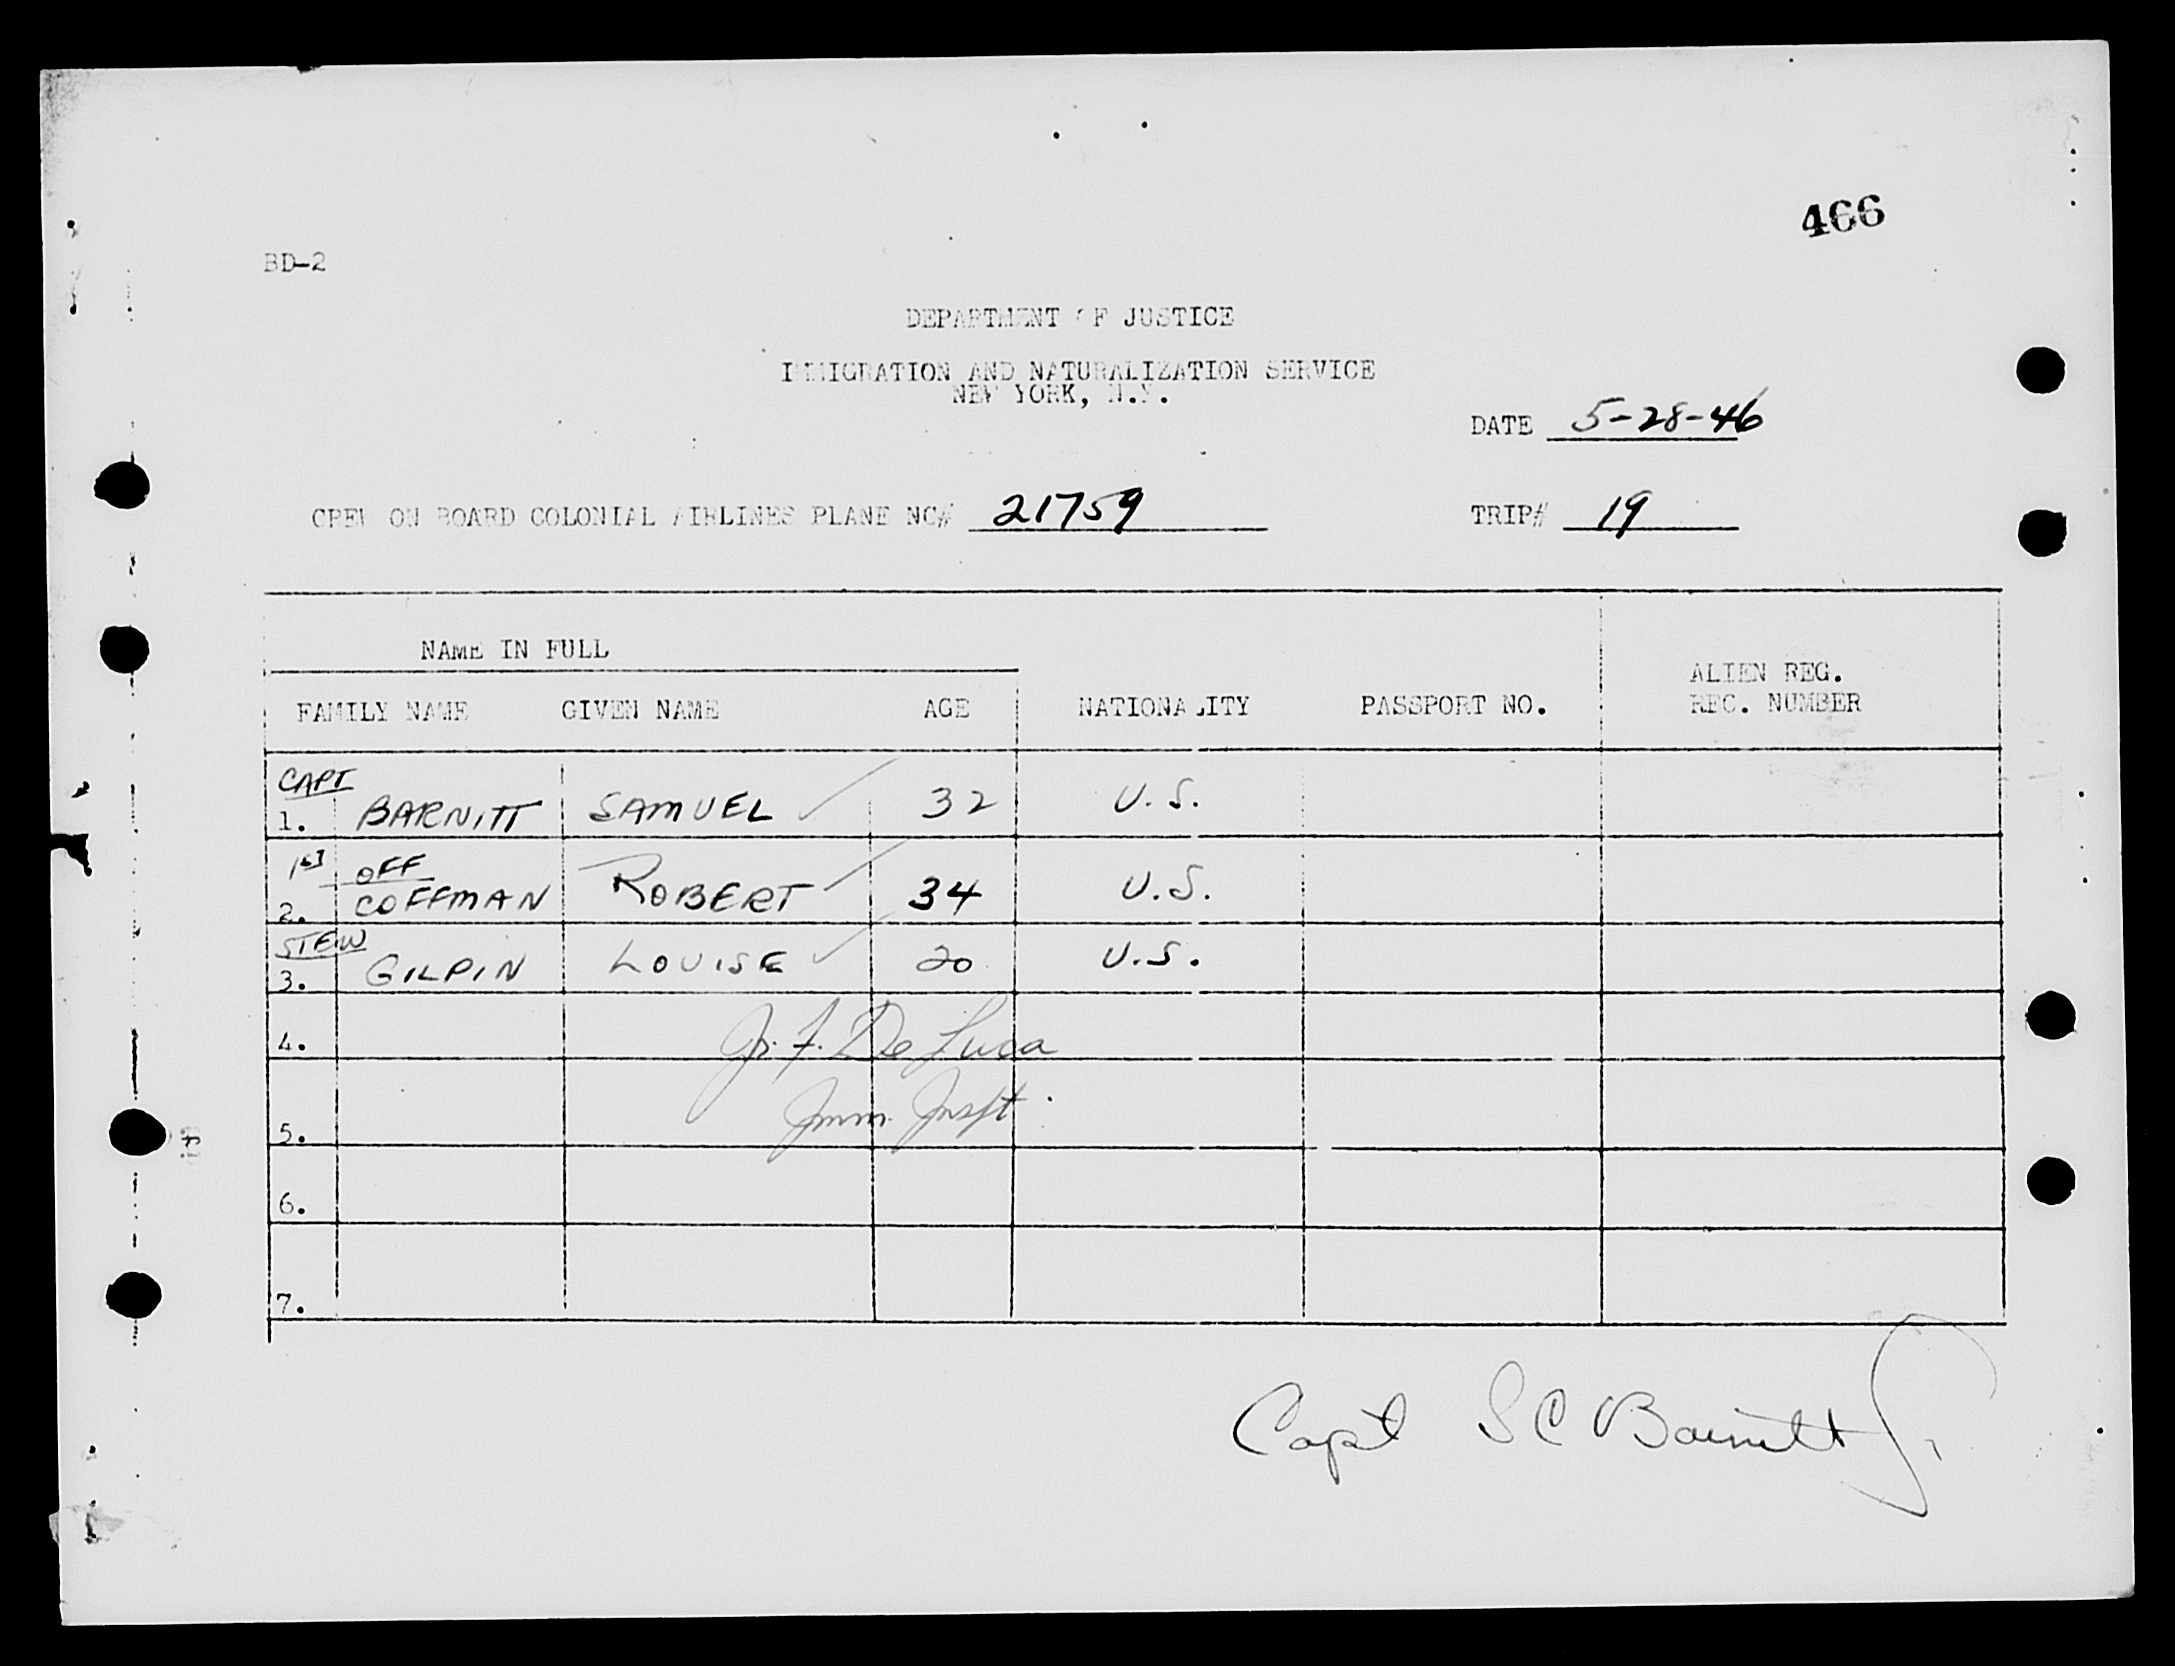 466
BD-2
DEPARTMENT OF JUSTICE
IMMIGRATION AND NATURALIZATION SERVICE
NEW YORK, N.Y.
DATE 5-28-46
CREW ON BOARD COLONIAL AIRLINES PLANE NC# 21759 TRIP# 19
NAME IN FULL
FAMILY NAME GIVEN NAME AGE NATIONALITY PASSPORT NO. ALIEN REG. REC. NUMBER
CAPT
1. BARNITT SAMUEL 32 U.S.
1ST OFF
2. COFFMAN ROBERT 34 U.S.
STEW
3. GILPIN LOUISE 20 U.S.
4. J. F. De Luca
5. Imm. Inspt.
6.
7.
Capt S C Barnitt Jr.